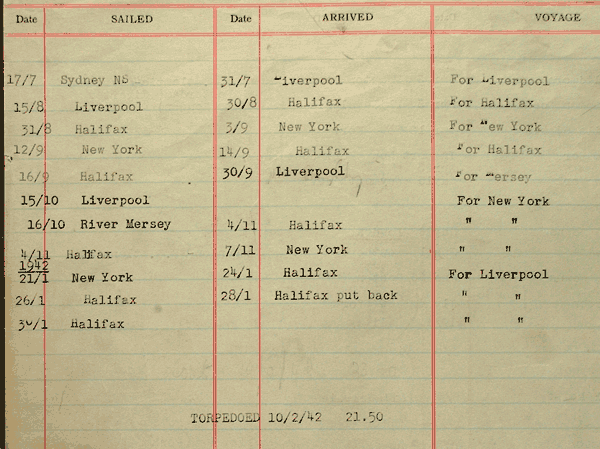 Date SAILED Date ARRIVED VOYAGE
17/7 Sydney NS 31/7 Liverpool For Liverpool
15/8 Liverpool 30/8 Halifax For Halifax
31/8 Halifax 3/9 New York For New York
12/9 New York 14/9 Halifax For Halifax
16/9 Halifax 30/9 Liverpool For Mersey
15/10 Liverpool For New York
16/10 River Mersey 4/11 Halifax " "
4/11 Halifax 7/11 New York " "
1942
21/1 New York 24/1 Halifax For Liverpool
26/1 Halifax 28/1 Halifax put back " "
30/1 Halifax " "
TORPEDOED 10/2/42 21.50